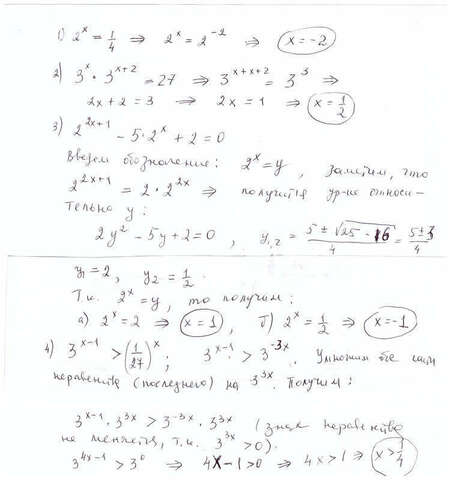 1) 2^x = 1/4 ⇒ 2^x = 2^-2 ⇒ x = -2
2) 3^x · 3^x+2 = 27 ⇒ 3^x+x+2 = 3^3 ⇒
2x + 2 = 3 ⇒ 2x = 1 ⇒ x = 1/2
3) 2^2x+1 - 5·2^x + 2 = 0
Введем обозначение: 2^x = y, заметим, что
2^2x+1 = 2·2^2x ⇒ получится ур-ие относи-
тельно y:
2y^2 - 5y + 2 = 0, y1,2 = (5 ± √25 - 16)/4 = (5 ± 3)/4
y1 = 2, y2 = 1/2.
Т.к. 2^x = y, то получим:
а) 2^x = 2 ⇒ x = 1, б) 2^x = 1/2 ⇒ x = -1
4) 3^x-1 > (1/27)^x; 3^x-1 > 3^-3x. Умножим обе части
неравенства (последнего) на 3^3x. Получим:
3^x-1 · 3^3x > 3^-3x · 3^3x (знак неравенства
не меняется, т.к. 3^3x > 0).
3^4x-1 > 3^0 ⇒ 4x - 1 > 0 ⇒ 4x > 1 ⇒ x > 1/4